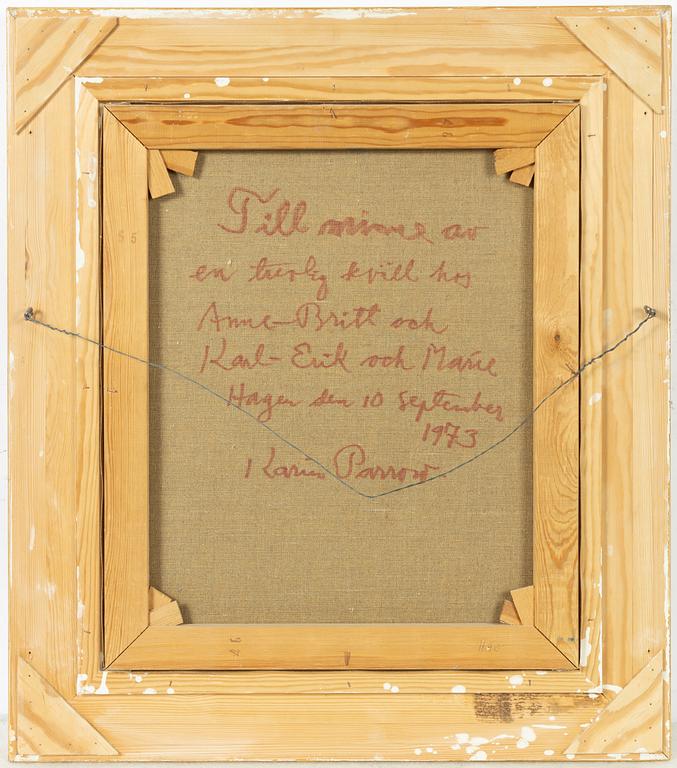 Till minne av
en trevlig kväll hos
Anne-Britt och
Karl-Erik och Marie
Hagen den 10 september
1973
Karin Parrow
55
46